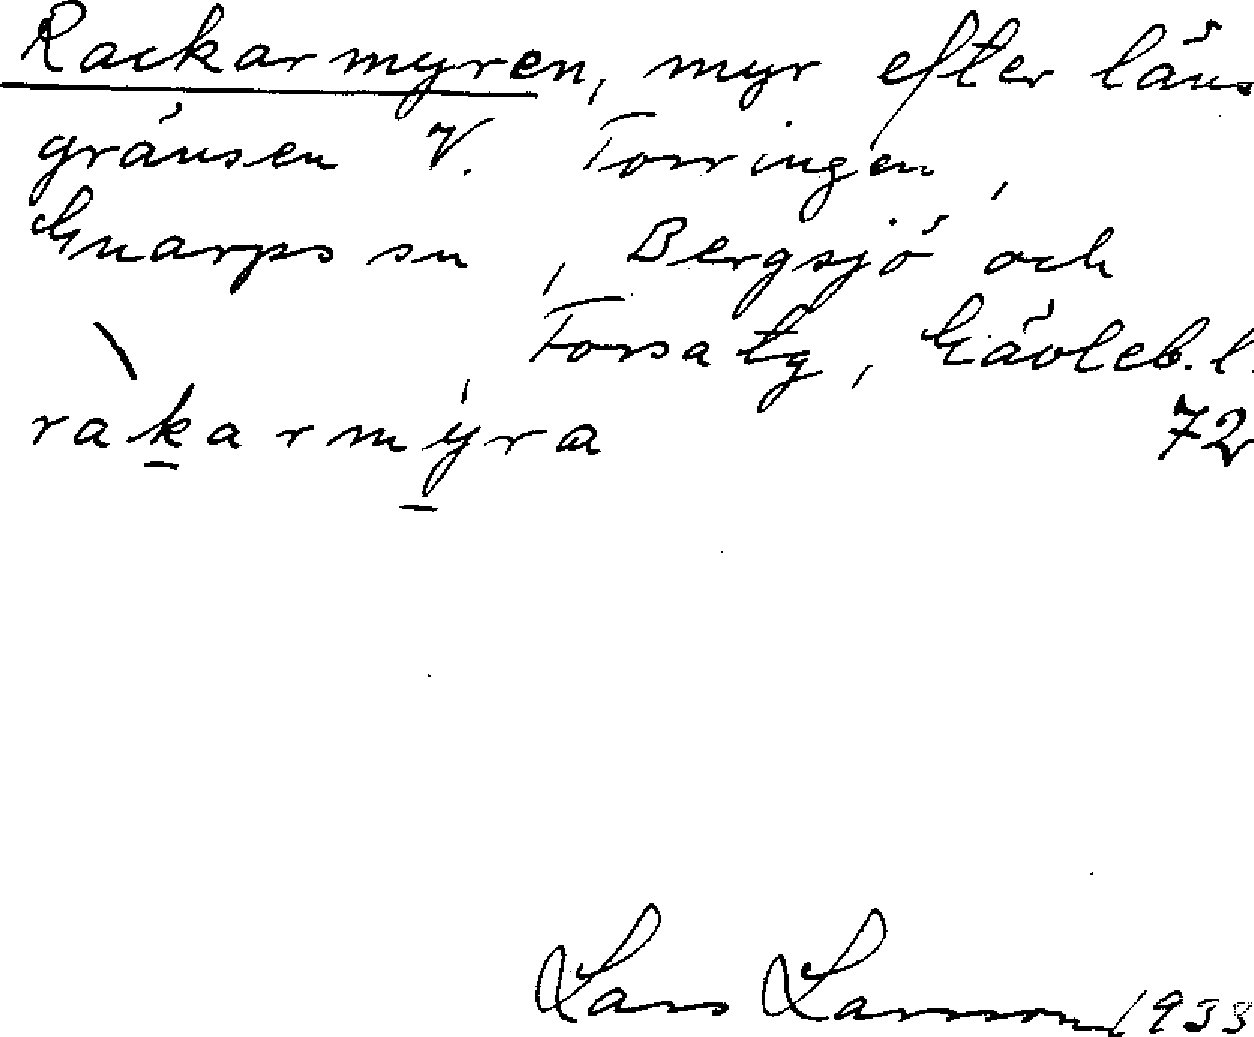 Rackarmyren, myr efter läns
gränsen V. Torringen,
Gnarps sn, Bergsjö och
Forsa tg, Gävleb. l.
ràkarmýra 72
Lars Larsson 1933